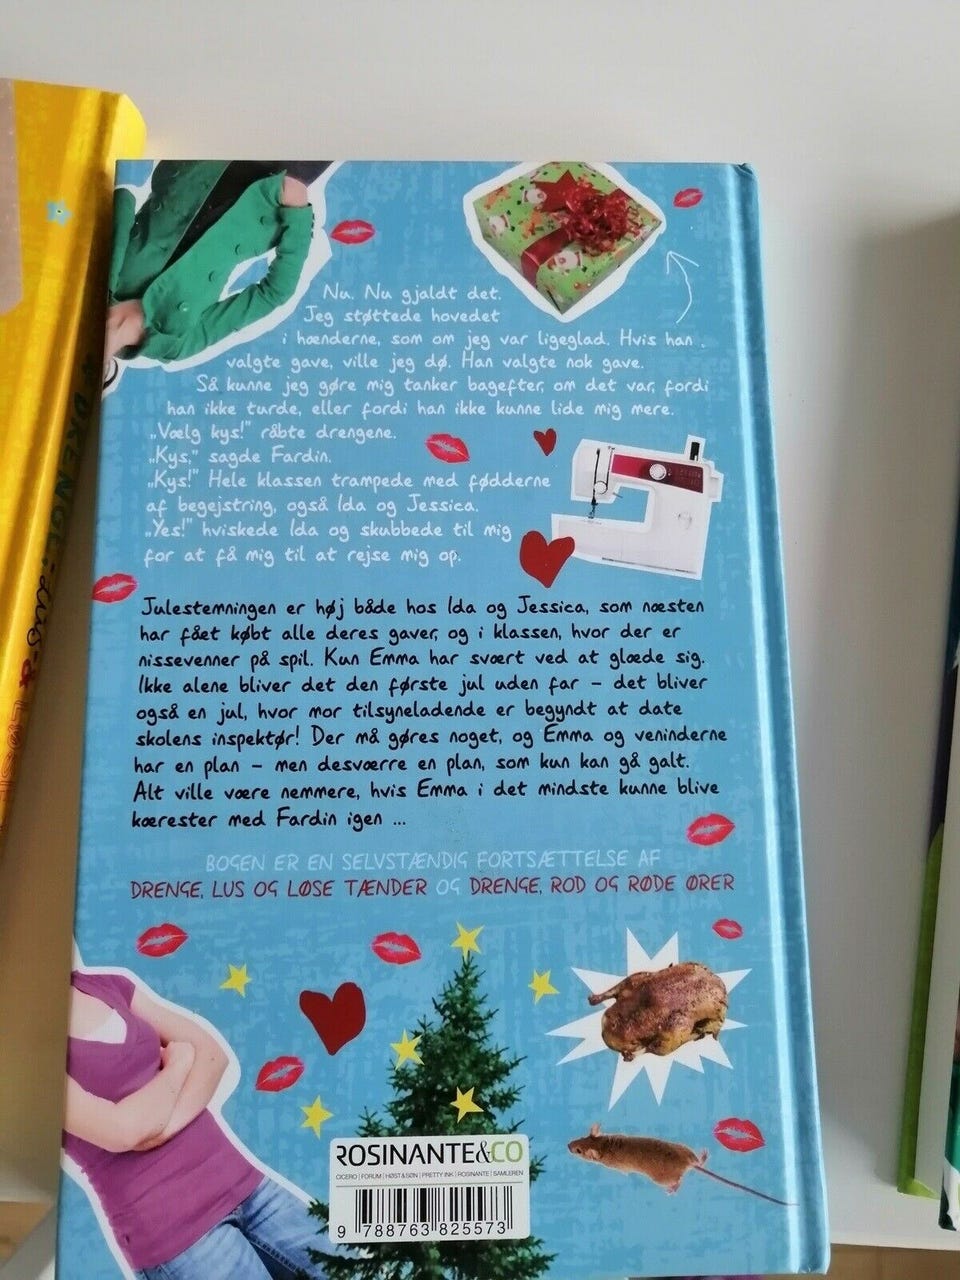 Nu. Nu gjaldt det.
Jeg støttede hovedet
i hænderne, som om jeg var ligeglad. Hvis han
valgte gave, ville jeg dø. Han valgte nok gave.
Så kunne jeg gøre mig tanker bagefter, om det var, fordi
han ikke turde, eller fordi han ikke kunne lide mig mere.
„Vælg kys!" råbte drengene.
„Kys," sagde Fardin.
„Kys!" Hele klassen trampede med fødderne
af begejstring, også Ida og Jessica.
„Yes!" hviskede Ida og skubbede til mig
for at få mig til at rejse mig op.
Julestemningen er høj både hos Ida og Jessica, som næsten
har fået købt alle deres gaver, og i klassen, hvor der er
nissevenner på spil. Kun Emma har svært ved at glæde sig.
Ikke alene bliver det den første jul uden far – det bliver
også en jul, hvor mor tilsyneladende er begyndt at date
skolens inspektør! Der må gøres noget, og Emma og veninderne
har en plan – men desværre en plan, som kun kan gå galt.
Alt ville være nemmere, hvis Emma i det mindste kunne blive
kærester med Fardin igen ...
BOGEN ER EN SELVSTÆNDIG FORTSÆTTELSE AF
DRENGE, LUS OG LØSE TÆNDER OG DRENGE, ROD OG RØDE ØRER
ROSINANTE&CO
CICERO | FORUM | HØST & SØN | PRETTY INK | ROSINANTE | SAMLEREN
9 788763 825573